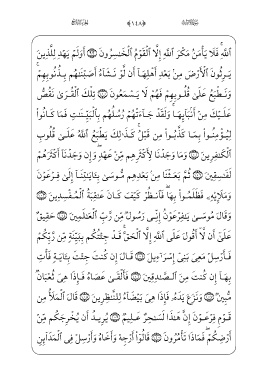 (١٤٨)
ٱللَّهِ فَلَا يَأْمَنُ مَكْرَ ٱللَّهِ إِلَّا ٱلْقَوْمُ ٱلْخَٰسِرُونَ أَوَلَمْ يَهْدِ لِلَّذِينَ
يَرِثُونَ ٱلْأَرْضَ مِنۢ بَعْدِ أَهْلِهَآ أَن لَّوْ نَشَآءُ أَصَبْنَٰهُم بِذُنُوبِهِمْ
وَنَطْبَعُ عَلَىٰ قُلُوبِهِمْ فَهُمْ لَا يَسْمَعُونَ تِلْكَ ٱلْقُرَىٰ نَقُصُّ
عَلَيْكَ مِنْ أَنۢبَآئِهَا وَلَقَدْ جَآءَتْهُمْ رُسُلُهُم بِٱلْبَيِّنَٰتِ فَمَا كَانُوا۟
لِيُؤْمِنُوا۟ بِمَا كَذَّبُوا۟ مِن قَبْلُ كَذَٰلِكَ يَطْبَعُ ٱللَّهُ عَلَىٰ قُلُوبِ
ٱلْكَٰفِرِينَ وَمَا وَجَدْنَا لِأَكْثَرِهِم مِّنْ عَهْدٍ وَإِن وَجَدْنَآ أَكْثَرَهُمْ
لَفَٰسِقِينَ ثُمَّ بَعَثْنَا مِنۢ بَعْدِهِم مُّوسَىٰ بِـَٔايَٰتِنَآ إِلَىٰ فِرْعَوْنَ
وَمَلَإِي۟هِۦ فَظَلَمُوا۟ بِهَا فَٱنظُرْ كَيْفَ كَانَ عَٰقِبَةُ ٱلْمُفْسِدِينَ
وَقَالَ مُوسَىٰ يَٰفِرْعَوْنُ إِنِّى رَسُولٌ مِّن رَّبِّ ٱلْعَٰلَمِينَ حَقِيقٌ
عَلَىٰٓ أَن لَّآ أَقُولَ عَلَى ٱللَّهِ إِلَّا ٱلْحَقَّ قَدْ جِئْتُكُم بِبَيِّنَةٍ مِّن رَّبِّكُمْ
فَأَرْسِلْ مَعِىَ بَنِىٓ إِسْرَٰٓءِيلَ قَالَ إِن كُنتَ جِئْتَ بِـَٔايَةٍ فَأْتِ
بِهَآ إِن كُنتَ مِنَ ٱلصَّٰدِقِينَ فَأَلْقَىٰ عَصَاهُ فَإِذَا هِىَ ثُعْبَانٌ
مُّبِينٌ وَنَزَعَ يَدَهُۥ فَإِذَا هِىَ بَيْضَآءُ لِلنَّٰظِرِينَ قَالَ ٱلْمَلَأُ مِن
قَوْمِ فِرْعَوْنَ إِنَّ هَٰذَا لَسَٰحِرٌ عَلِيمٌ يُرِيدُ أَن يُخْرِجَكُم مِّنْ
أَرْضِكُمْ فَمَاذَا تَأْمُرُونَ قَالُوٓا۟ أَرْجِهْ وَأَخَاهُ وَأَرْسِلْ فِى ٱلْمَدَآئِنِ